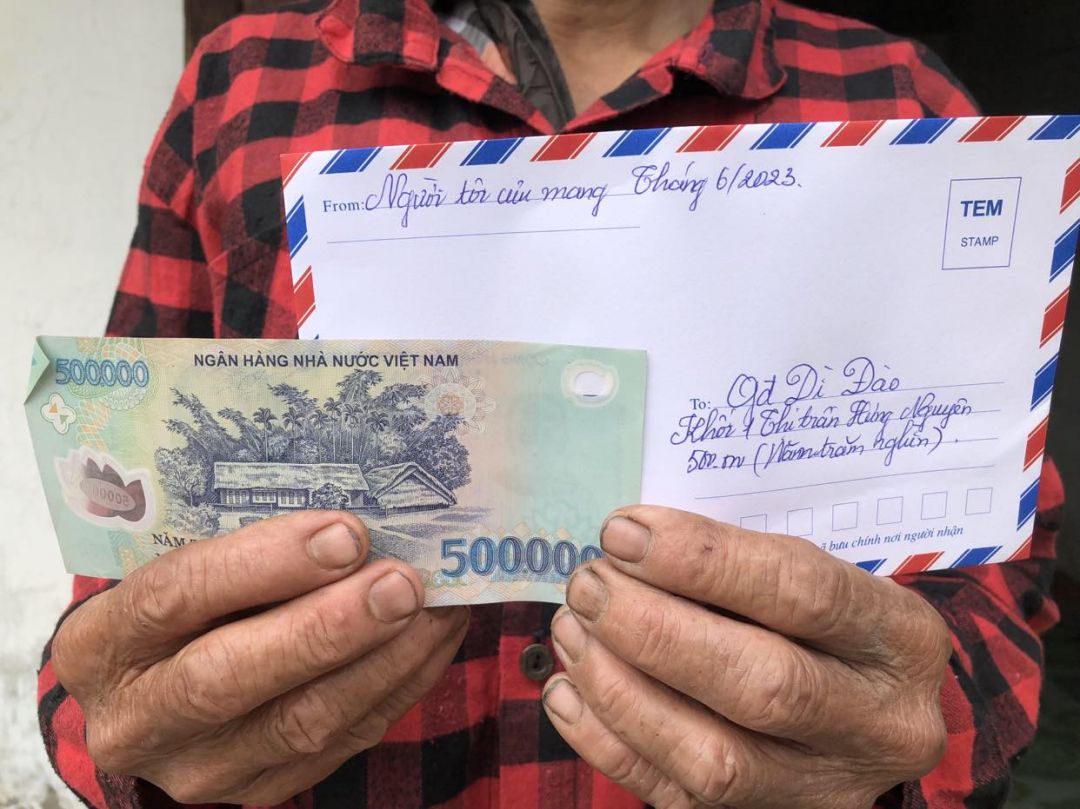 From: Người tôi cưu mang Tháng 6/2023.
TEM
STAMP
500000
NGÂN HÀNG NHÀ NƯỚC VIỆT NAM
500000
NĂM
500000
To: Gđ Dì Đào
Khối 1 Thị trấn Hưng Nguyên
500.000 (Năm trăm nghìn).
mã bưu chính nơi người nhận